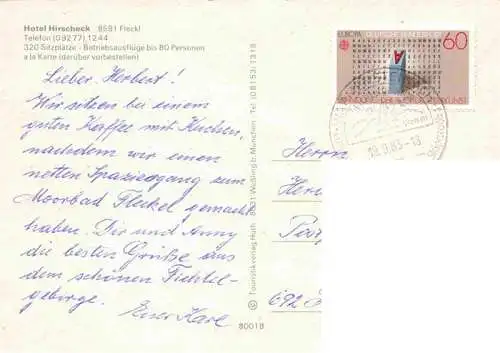 Hotel Hirscheck 8591 Fleckl
Telefon (09277) 1244
320 Sitzplätze - Betriebsausflüge bis 80 Personen
a la Karte (darüber vorbestellen)
Lieber Herbert!
Wir sitzen bei einem
guten Kaffee mit Kuchen,
nachdem wir einen
netten Spaziergang zum
Moorbad Fleckel gemacht
haben. Dir und Anny
die besten Grüße aus
dem schönen Fichtel-
gebirge.
Euer Karl
80018
© Touristikverlag Huth · 8031 Weßling b. München · Tel. (08153) 1318
EUROPA DEUTSCHE BUNDESPOST
60
19.9.83-18
Herrn
692